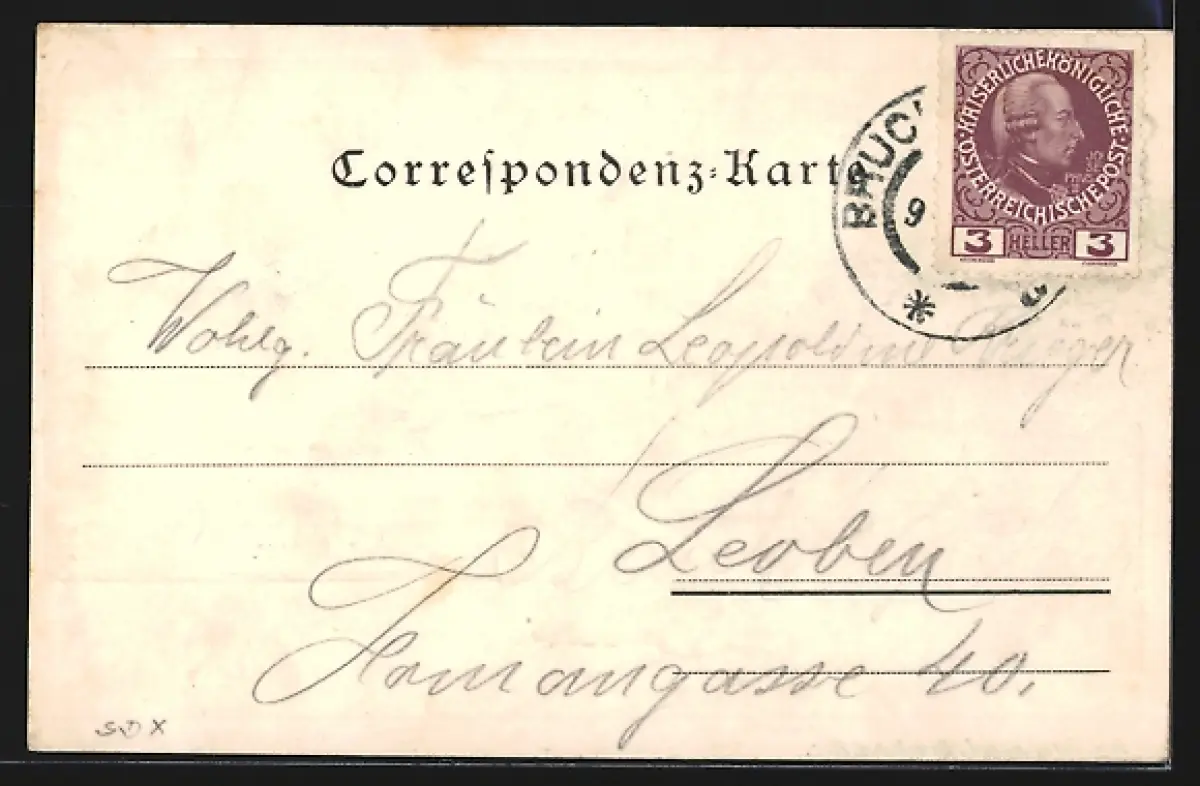 Correspondenz-Karte
BRUCK
9
KAISERLICHE KÖNIGLICHE ÖSTERREICHISCHE POST
3 HELLER 3
Wohlg. Fräulein Leopoldine
Leoben
40.
SDX